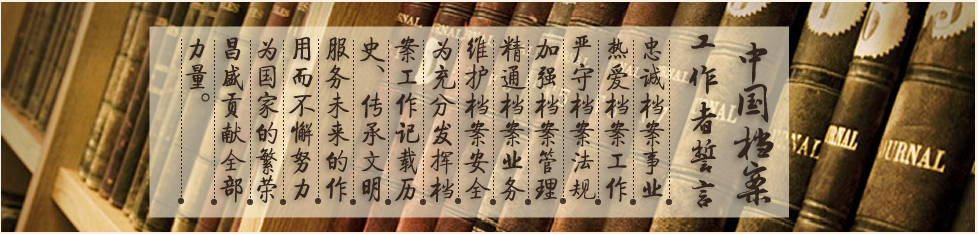 中国档案
工作者誓言
忠诚档案事业
热爱档案工作
严守档案法规
加强档案管理
精通档案业务
维护档案安全
为充分发挥档
案工作记载历
史、传承文明
服务未来的作
用而不懈努力
为国家的繁荣
昌盛贡献全部
力量。
URNAL